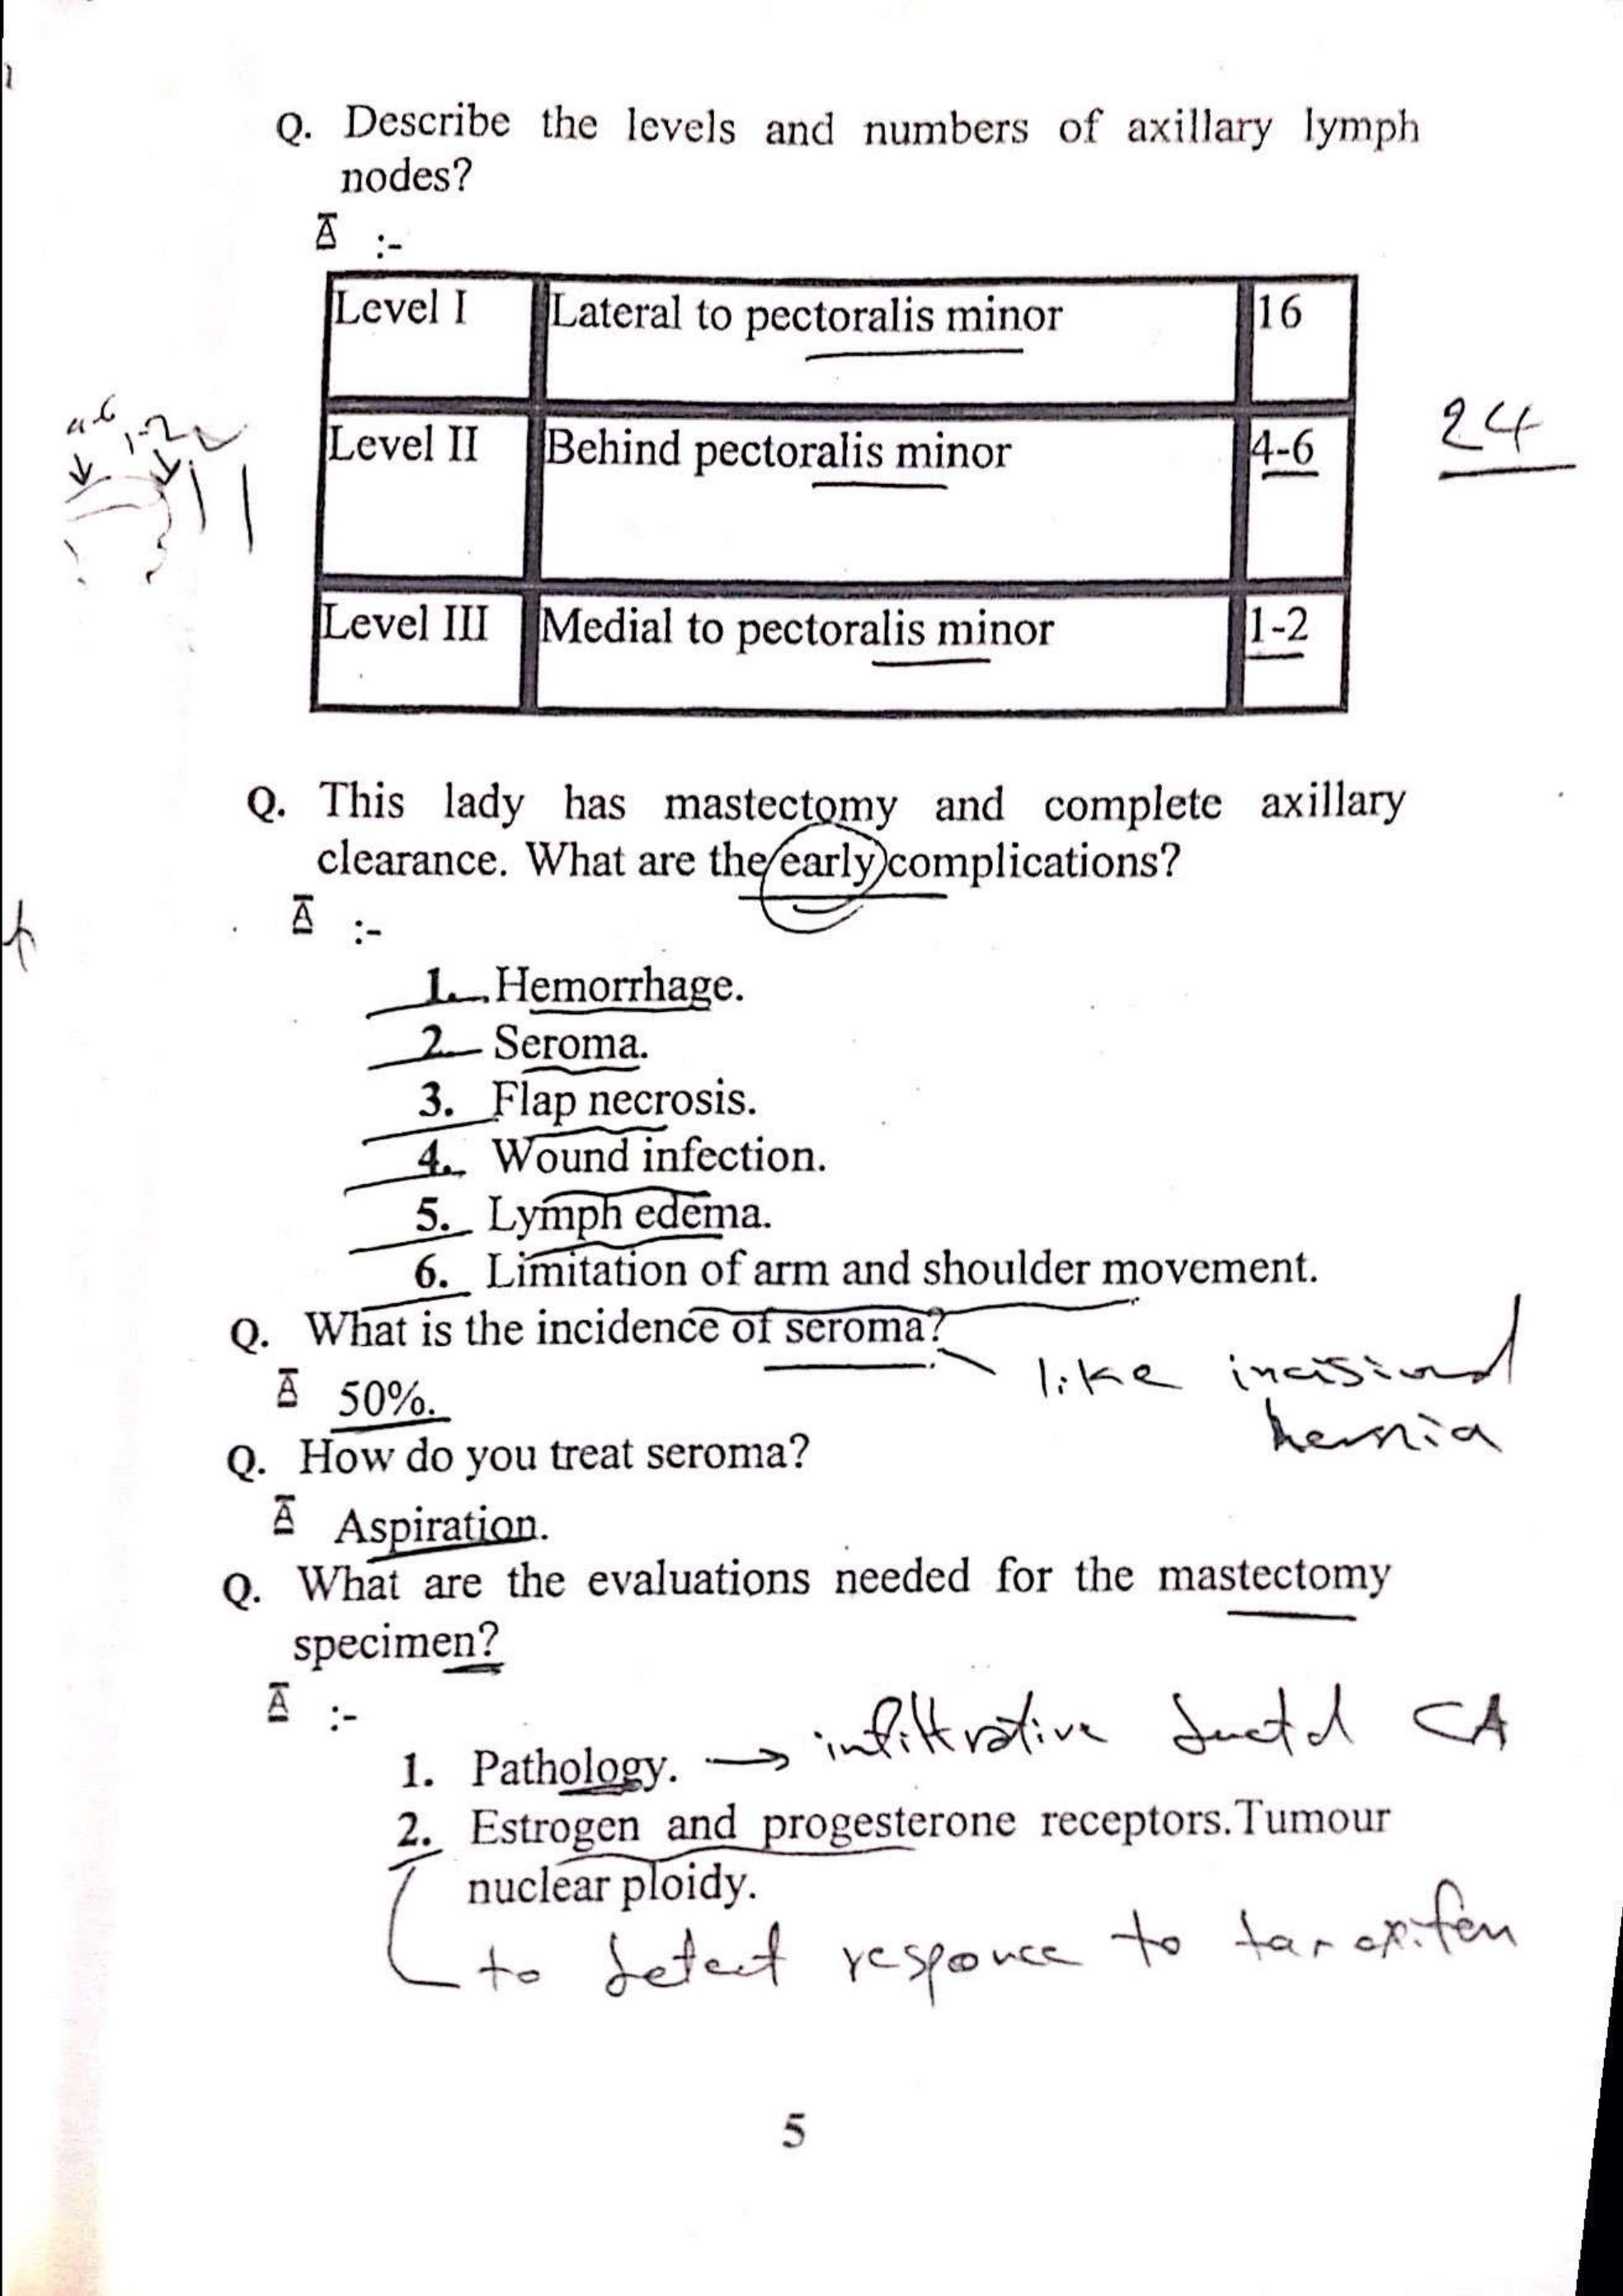 Q. Describe the levels and numbers of axillary lymph
nodes?
A :-
Level I Lateral to pectoralis minor 16
1-2
24
Level II Behind pectoralis minor 4-6
Level III Medial to pectoralis minor 1-2
Q. This lady has mastectomy and complete axillary
clearance. What are the early complications?
A :-
1. Hemorrhage.
2. Seroma.
3. Flap necrosis.
4. Wound infection.
5. Lymph edema.
6. Limitation of arm and shoulder movement.
Q. What is the incidence of seroma?
like incisional
hernia
A 50%.
Q. How do you treat seroma?
A Aspiration.
Q. What are the evaluations needed for the mastectomy
specimen?
A :-
1. Pathology. → infiltrative ductal CA
2. Estrogen and progesterone receptors.Tumour
nuclear ploidy.
to detect responce to
5